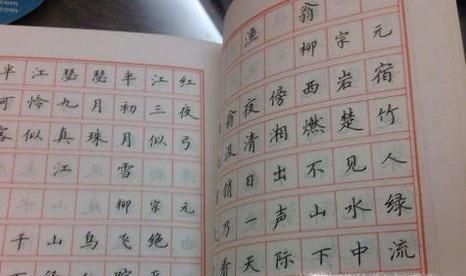 com
半江瑟瑟半江红
可怜九月初三夜
似真珠月似弓
江雪
柳宗元
千山鸟飞绝
踪
渔翁
柳宗元
翁夜傍西岩宿
汲清湘燃楚竹
销日出不见人
乃一声山水绿
看天际下中流